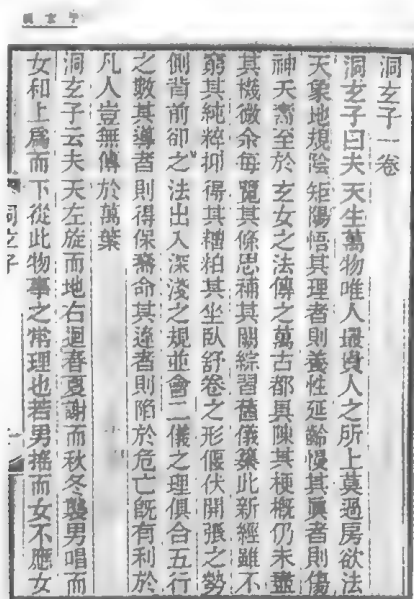 洞玄子
洞玄子一卷
洞玄子曰夫天生萬物唯人最貴人之所上莫過房欲法
天象地規陰矩陽悟其理者則養性延齡慢其眞者則傷
神夭壽至於玄女之法傳之萬古都具陳其梗概仍未盡
其機微余每覽其條思補其闕綜習舊儀纂此新經雖不
窮其純粹抑得其糟粕其坐臥舒卷之形偃伏開張之勢
側背前卻之法出入深淺之規並會二儀之理俱合五行
之數其導者則得保壽命其違者則陷於危亡旣有利於
凡人豈無傳於萬葉
洞玄子云夫天左旋而地右迴春夏謝而秋冬襲男唱而
女和上爲而下從此物事之常理也若男搖而女不應女
洞玄子
一